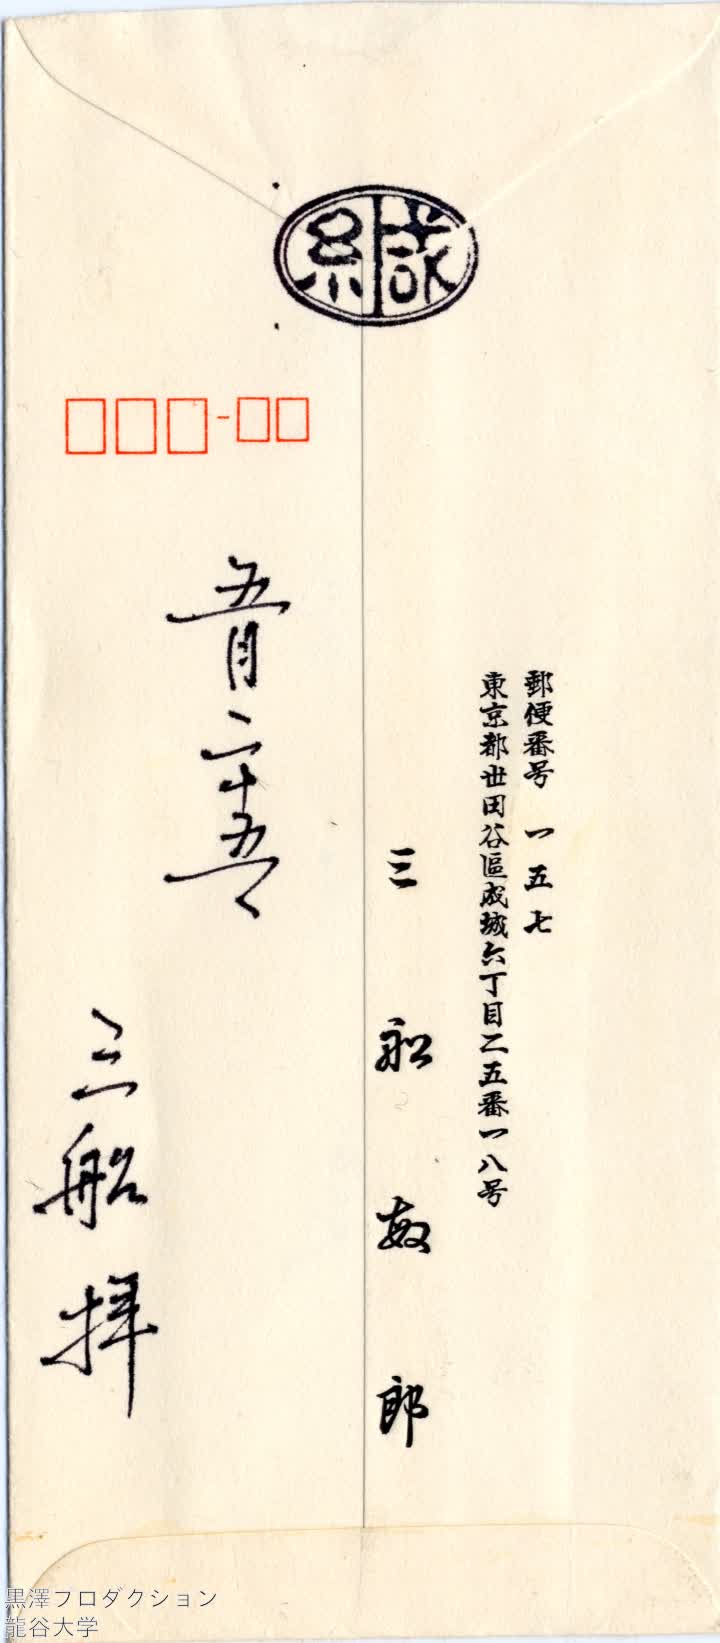 緘
郵便番号 一五七
東京都世田谷區成城六丁目二五番一八号
三船敏郎
五月二十五日
三船 拝
黒澤プロダクション
龍谷大学